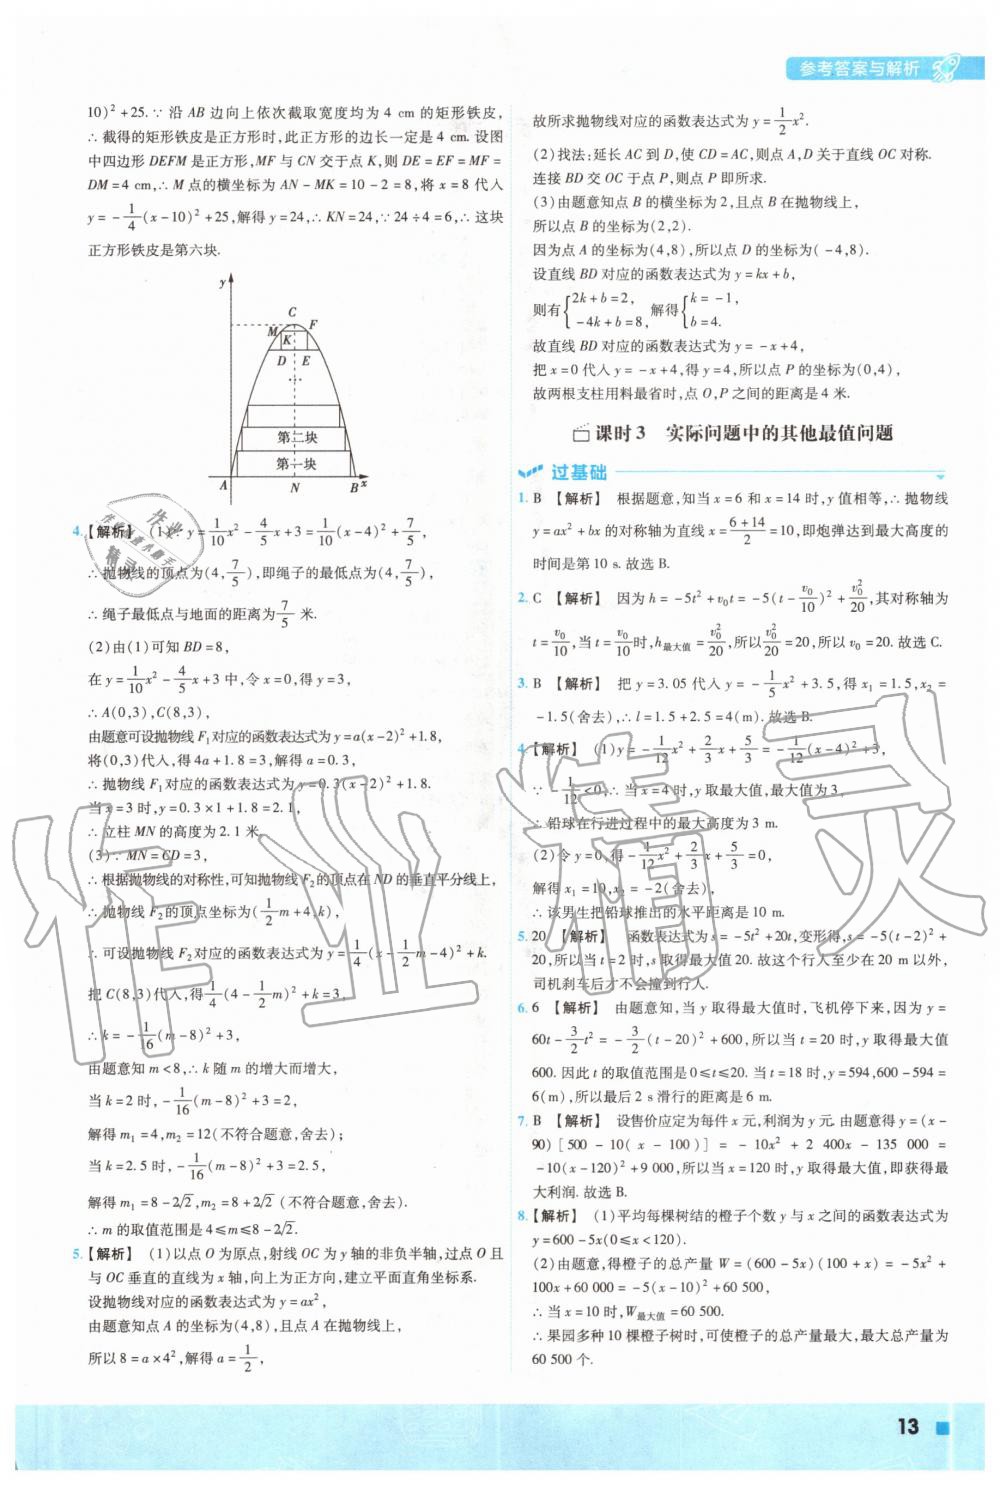 参考答案与解析
10)²+25.∵ 沿 AB 边向上依次截取宽度均为 4 cm 的矩形铁皮,
∴ 截得的矩形铁皮是正方形时,此正方形的边长一定是 4 cm. 设图
中四边形 DEFM 是正方形,MF 与 CN 交于点 K,则 DE=EF=MF=
DM=4 cm,∴ M 点的横坐标为 AN-MK=10-2=8,将 x=8 代入
y=-1/4(x-10)²+25,解得 y=24,∴ KN=24,∵ 24÷4=6,∴ 这块
正方形铁皮是第六块.
y
C
M F
K
D E
…
第二块
第一块
A N B x
4.【解析】 (1)∵ y=1/10x²-4/5x+3=1/10(x-4)²+7/5,
∴ 抛物线的顶点为(4,7/5),即绳子的最低点为(4,7/5),
∴ 绳子最低点与地面的距离为7/5米.
(2)由(1)可知 BD=8,
在 y=1/10x²-4/5x+3 中,令 x=0,得 y=3,
∴ A(0,3),C(8,3),
由题意可设抛物线 F₁对应的函数表达式为 y=a(x-2)²+1.8,
将(0,3)代入,得 4a+1.8=3,解得 a=0.3,
∴ 抛物线 F₁对应的函数表达式为 y=0.3(x-2)²+1.8.
当 x=3 时,y=0.3×1+1.8=2.1,
∴ 立柱 MN 的高度为 2.1 米.
(3)∵ MN=CD=3,
∴ 根据抛物线的对称性,可知抛物线 F₂的顶点在 ND 的垂直平分线上,
∴ 抛物线 F₂的顶点坐标为(1/2m+4,k),
∴ 可设抛物线 F₂对应的函数表达式为 y=1/4(x-1/2m-4)²+k.
把 C(8,3)代入,得1/4(4-1/2m)²+k=3,
∴ k=-1/16(m-8)²+3,
由题意知 m<8,∴ k 随 m 的增大而增大,
当 k=2 时,-1/16(m-8)²+3=2,
解得 m₁=4,m₂=12(不符合题意,舍去);
当 k=2.5 时,-1/16(m-8)²+3=2.5,
解得 m₁=8-2√2,m₂=8+2√2(不符合题意,舍去).
∴ m 的取值范围是 4≤m≤8-2√2.
5.【解析】 (1)以点 O 为原点,射线 OC 为 y 轴的非负半轴,过点 O 且
与 OC 垂直的直线为 x 轴,向上为正方向,建立平面直角坐标系.
设抛物线对应的函数表达式为 y=ax²,
由题意知点 A 的坐标为(4,8),且点 A 在抛物线上,
所以 8=a×4²,解得 a=1/2,
故所求抛物线对应的函数表达式为 y=1/2x².
(2)找法:延长 AC 到 D,使 CD=AC,则点 A,D 关于直线 OC 对称.
连接 BD 交 OC 于点 P,则点 P 即所求.
(3)由题意知点 B 的横坐标为 2,且点 B 在抛物线上,
所以点 B 的坐标为(2,2).
因为点 A 的坐标为(4,8),所以点 D 的坐标为(-4,8).
设直线 BD 对应的函数表达式为 y=kx+b,
则有{2k+b=2, -4k+b=8, 解得{k=-1, b=4.
故直线 BD 对应的函数表达式为 y=-x+4,
把 x=0 代入 y=-x+4,得 y=4,所以点 P 的坐标为(0,4),
故两根支柱用料最省时,点 O,P 之间的距离是 4 米.
课时 3 实际问题中的其他最值问题
过基础
1. B 【解析】 根据题意,知当 x=6 和 x=14 时,y 值相等,∴ 抛物线
y=ax²+bx 的对称轴为直线 x=(6+14)/2=10,即炮弹达到最大高度的
时间是第 10 s. 故选 B.
2. C 【解析】 因为 h=-5t²+v₀t=-5(t-v₀/10)²+v₀²/20,其对称轴为
t=v₀/10,当 t=v₀/10时,h最大值=v₀²/20,所以v₀²/20=20,所以 v₀=20. 故选 C.
3. B 【解析】 把 y=3.05 代入 y=-1/5x²+3.5,得 x₁=1.5,x₂=
-1.5(舍去),∴ l=1.5+2.5=4(m). 故选 B.
4.【解析】 (1)y=-1/12x²+2/3x+5/3=-1/12(x-4)²+3,
∵ -1/12<0,∴ 当 x=4 时,y 取最大值,最大值为 3,
∴ 铅球在行进过程中的最大高度为 3 m.
(2)令 y=0,得-1/12x²+2/3x+5/3=0,
解得 x₁=10,x₂=-2(舍去),
∴ 该男生把铅球推出的水平距离是 10 m.
5. 20 【解析】 函数表达式为 s=-5t²+20t,变形得,s=-5(t-2)²+
20,所以当 t=2 时,s取得最大值20. 故这个行人至少在 20 m 以外,
司机刹车后才不会撞到行人.
6. 6 【解析】 由题意知,当 y 取得最大值时,飞机停下来,因为 y=
60t-3/2t²=-3/2(t-20)²+600,所以当 t=20 时,y 取得最大值
600. 因此 t 的取值范围是 0≤t≤20. 当 t=18 时,y=594,600-594=
6(m),所以最后 2 s 滑行的距离是 6 m.
7. B 【解析】 设售价应定为每件 x 元,利润为 y 元. 由题意得 y=(x-
90)[500-10(x-100)]=-10x²+2 400x-135 000=
-10(x-120)²+9 000,所以当 x=120 时,y 取得最大值,即获得最
大利润. 故选 B.
8.【解析】 (1)平均每棵树结的橙子个数 y 与 x 之间的函数表达式为
y=600-5x(0≤x<120).
(2)由题意,得橙子的总产量 W=(600-5x)(100+x)=-5x²+
100x+60 000=-5(x-10)²+60 500,
∴ 当 x=10 时,W最大值=60 500.
∴ 果园多种 10 棵橙子树时,可使橙子的总产量最大,最大产量为
60 500 个.
13
作业精灵